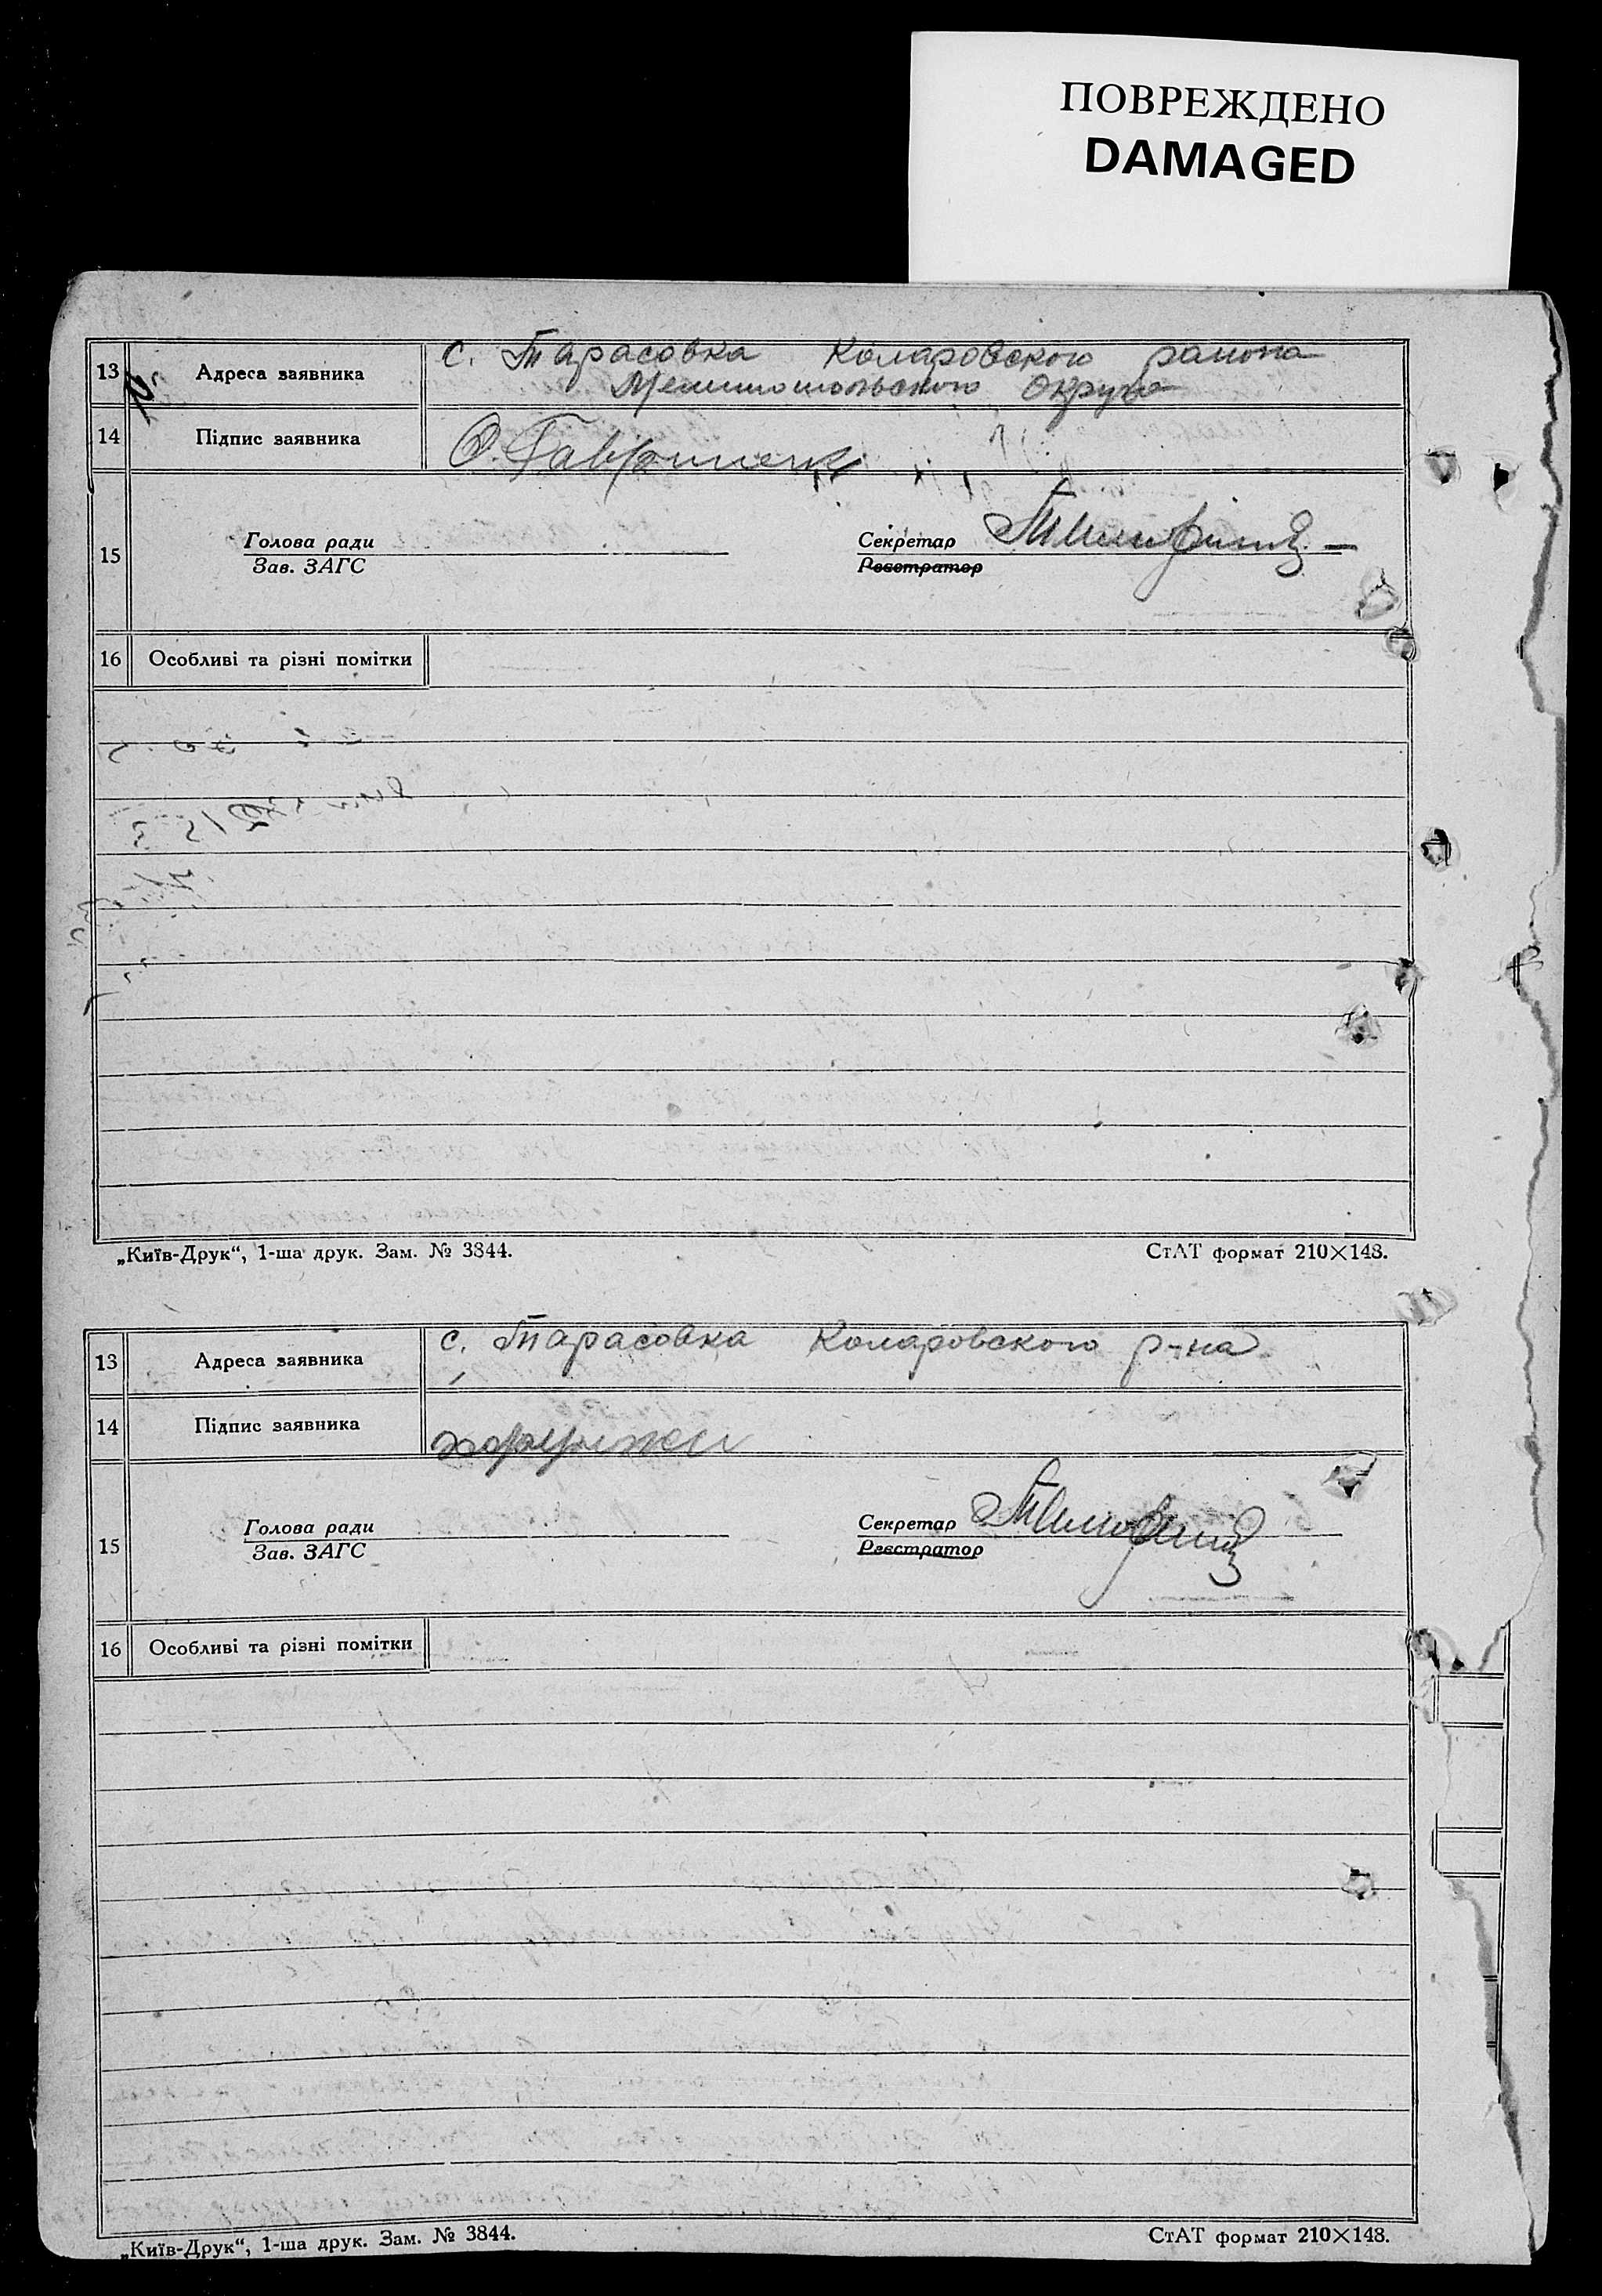 ПОВРЕЖДЕНО
DAMAGED
13 Адреса заявника с. Тарасовка Коларовского района
Мелитопольского Округа
14 Підпис заявника
15 Голова ради Секретар
Зав. ЗАГС Реєстратор
16 Особливі та різні помітки
„Київ-Друк“, 1-ша друк. Зам. № 3844. СтАТ формат 210×148.
13 Адреса заявника с. Тарасовка Коларовского р-на
14 Підпис заявника
15 Голова ради Секретар
Зав. ЗАГС Реєстратор
16 Особливі та різні помітки
„Київ-Друк“, 1-ша друк. Зам. № 3844. СтАТ формат 210×148.